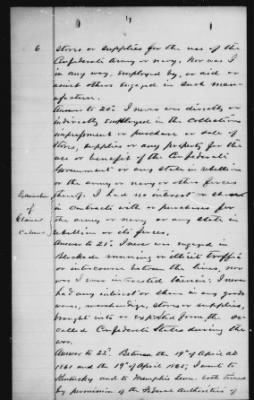 6 stores or supplies for the use of the
Confederate Army or navy. Nor was I
in any way employed by, or aid or
assist others engaged in such man-
ufacture.
Answer to 20: I never was directly or
indirectly employed in the collection
impressment or purchase or sale of
stores, supplies or any property for the
use or benefit of the Confederate
Government or any state in rebellion
or the army or navy or other forces
thereof. I had no interest or
in contracts with or purchases for
the army or navy or any State in
rebellion or its forces.
Answer to 21: I never was engaged in
blockade running or illicit traffic
or intercourse between the lines, nor
was I ever interested therein; I never
had any interest or share in any goods
wares, merchandize, stores or supplies,
brought into or exported from the so
called Confederate States during the
war.
Answer to 22: Between the 19th of April AD
1861 and the 19th of April 1865, I went to
Kentucky and to Memphis Tenn. both times
by permission of the Federal Authorities of
of
Claimt